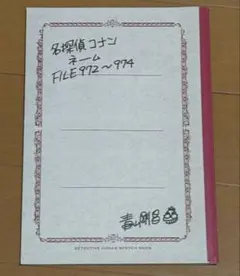 名探偵コナン
ネーム
FILE972～974
青山剛昌
DETECTIVE CONAN SPECIAL BOOK